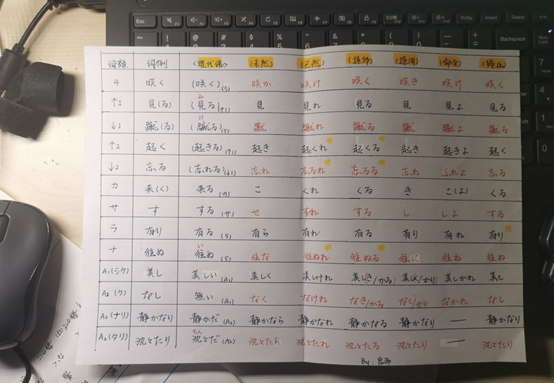 詞類 詞例 (現代語) (未然) (已然) (連体) (連用) (命令) (終止)
4 咲く (咲く)(5) 咲か 咲け 咲く 咲き 咲け 咲く
↑1 見(る) (見る)(↑1) 見 見れ 見る 見 見よ 見る
↓1 蹴(る) (蹴る)(5) 蹴 蹴れ 蹴る 蹴 蹴よ 蹴る
↑2 起く (起きる)(↑1) 起き 起くれ 起くる 起き 起きよ 起く
↓2 忘る (忘れる)(↓1) 忘れ 忘るれ 忘るる 忘れ 忘れよ 忘る
カ 来(く) 来る(カ) こ くれ くる き こ(よ) くる
サ す する(サ) せ すれ する し しよ する
ラ 有り 有る(5) 有ら 有れ 有る 有り 有れ 有り
ナ 往ぬ 往ぬ(5) 往な 往ぬれ 往ぬる 往に 往ね 往ぬ
A1(シク) 美し 美しい(A1) 美しく 美しけれ 美しき/かる 美しく/かり 美しかれ 美し
A2(ク) なし 無い(A1) なく なけれ なき/かる なく/かり なかれ なし
A3(ナリ) 静かなり 静かだ(A2) 静かなら 静かなれ 静かなる 静かなり — 静かなり
A4(タリ) 沈とたり 沈とだ(A2) 沈とたら 沈とたれ 沈とたる 沈とたり — 沈とたり
By:
Esc